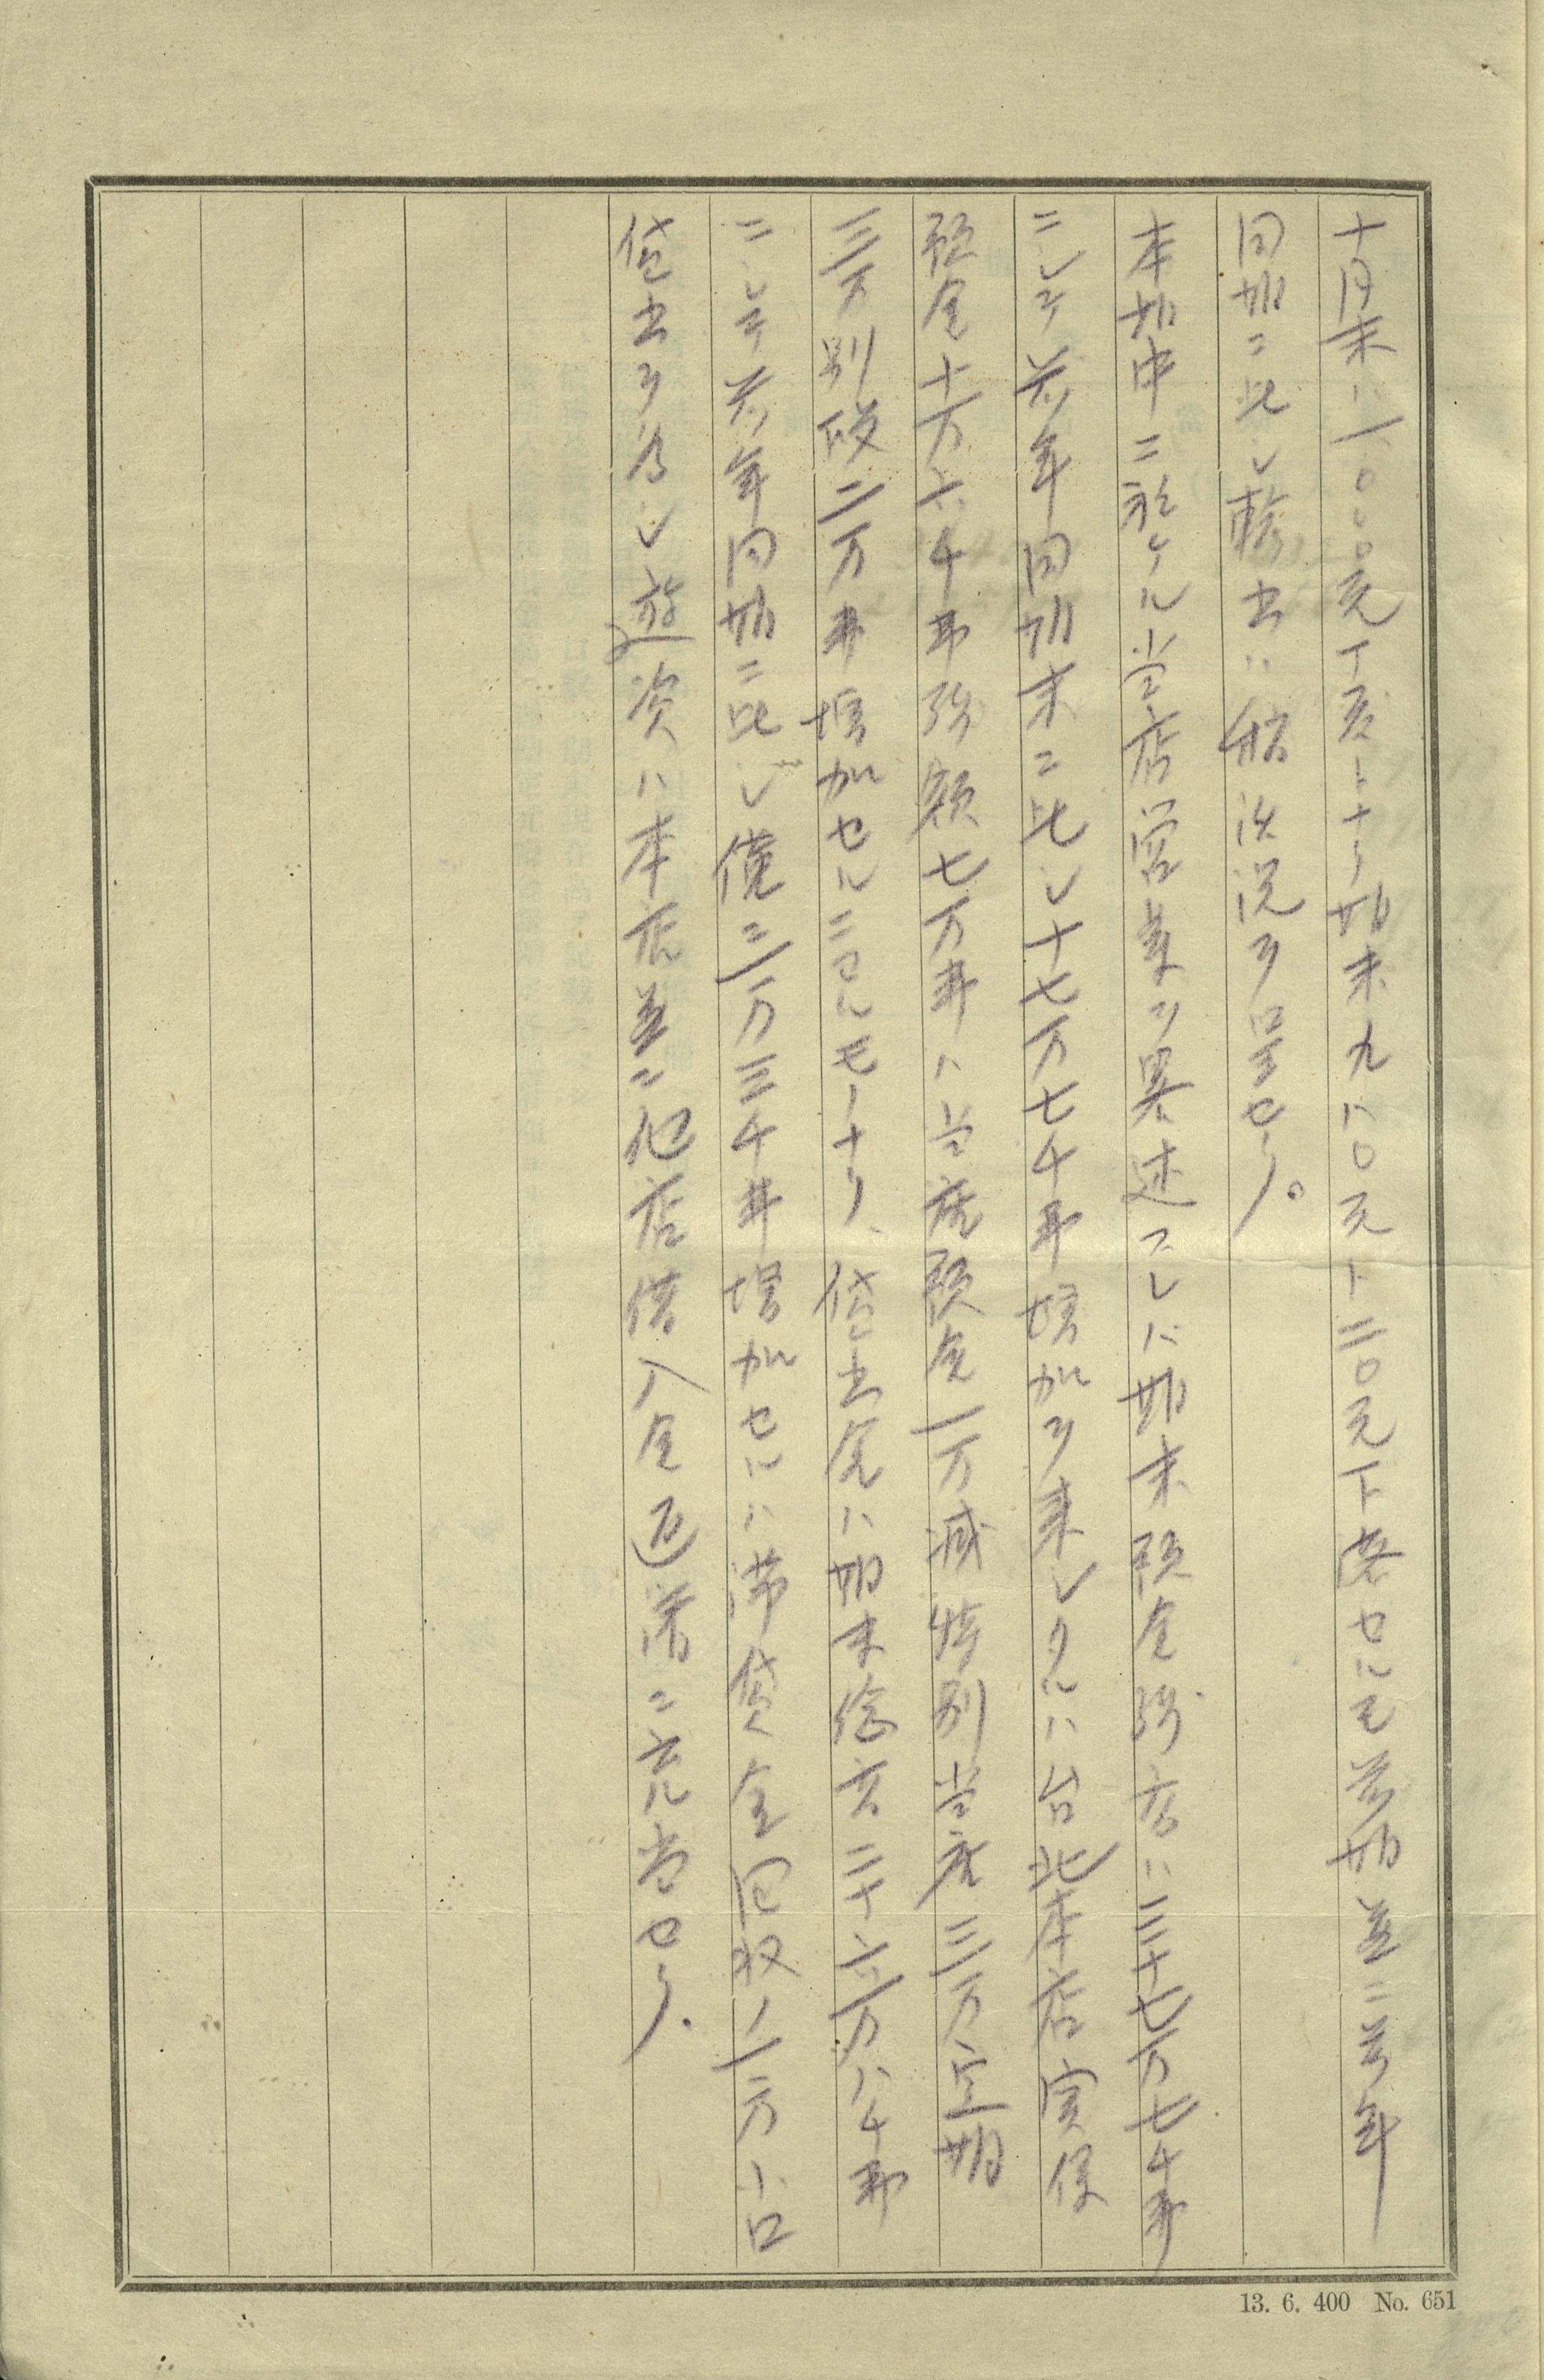 十月末ハ一〇〇〇元丁度トナリ期末九八〇元ト二〇元下落セルモ前期並ニ前年
同期ニ比シ輸出ハ稍活況ヲ呈セリ。
本期中ニ於ケル当店営業ヲ畧述スレバ期末預金残高ハ三十七万七千弗
ニシテ前年同期末ニ比シ十七万七千弗増加ヲ来シタルハ台北本店実保
預金十万六千弗残額七万弗ハ当座預金一万減特別当座三万定期
三万別段二万弗増加セルニヨルモノナリ、貸出金ハ期末総高二十六万八千弗
ニシテ前年同期ニ比シ僅ニ一万三千弗増加セルハ滞貸金回収ノ一方小口
貸出ヲ為シ遊資ハ本店並ニ他店借入金返済ニ充当セリ.
13. 6. 400 No. 651